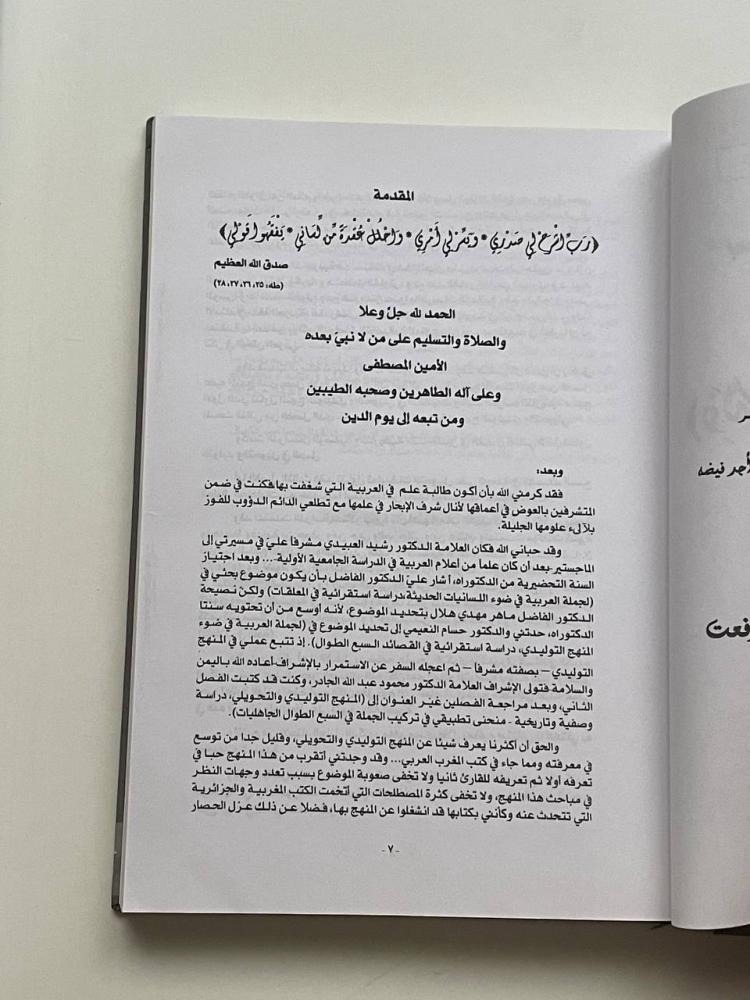 المقدمة
﴿رَبِّ اشْرَحْ لِي صَدْرِي * وَيَسِّرْ لِي أَمْرِي * وَاحْلُلْ عُقْدَةً مِّن لِّسَانِي * يَفْقَهُوا قَوْلِي﴾
صدق الله العظيم
(طه: ٢٥، ٢٦، ٢٧، ٢٨)
الحمد لله جلّ وعلا
والصلاة والتسليم على من لا نبيّ بعده
الأمين المصطفى
وعلى آله الطاهرين وصحبه الطيبين
ومن تبعه إلى يوم الدين
وبعد:
فقد كرمني الله بأن أكون طالبة علم في العربية التي شغفت بها فكنت في ضمن
المتشرفين بالعوض في أعماقها لأنال شرف الإبحار في علمها مع تطلعي الدائم الدؤوب للفوز
بلآلىء علومها الجليلة.
وقد حباني الله فكان العلامة الدكتور رشيد العبيدي مشرفاً عليّ في مسيرتي إلى
الماجستير-بعد أن كان علماً من أعلام العربية في الدراسة الجامعية الأولية-... وبعد اجتياز
السنة التحضيرية من الدكتوراه، أشار عليّ الدكتور الفاضل بأن يكون موضوع بحثي في
(لجملة العربية في ضوء اللسانيات الحديثة،دراسة استقرائية في المعلقات) ولكن نصيحة
الدكتور الفاضل ماهر مهدي هلال بتحديد الموضوع، لأنه أوسع من أن تحتويه سنتا
الدكتوراه، حدتني والدكتور حسام النعيمي إلى تحديد الموضوع في (لجملة العربية في ضوء
المنهج التوليدي، دراسة استقرائية في القصائد السبع الطوال). إذ تتبع عملي في المنهج
التوليدي – بصفته مشرفاً – ثم اعجله السفر عن الاستمرار بالإشراف-أعاده الله باليمن
والسلامة فتولى الإشراف العلامة الدكتور محمود عبد الله الجادر، وكنت قد كتبت الفصل
الثاني، وبعد مراجعة الفصلين غيّر العنوان إلى (المنهج التوليدي والتحويلي، دراسة
وصفية وتاريخية - منحنى تطبيقي في تركيب الجملة في السبع الطوال الجاهليات).
والحق أن أكثرنا يعرف شيئا عن المنهج التوليدي والتحويلي، وقليل جدا من توسع
في معرفته ومما جاء في كتب المغرب العربي... وقد وجدتني أتقرب من هذا المنهج حبا في
تعرفه أولا ثم تعريفه للقارئ ثانيا ولا تخفى صعوبة الموضوع بسبب تعدد وجهات النظر
في مباحث هذا المنهج، ولا تخفى كثرة المصطلحات التي أتخمت الكتب المغربية والجزائرية
التي تتحدث عنه وكأنني بكتابها قد انشغلوا عن المنهج بها، فضلا عن ذلك عزل الحصار
- ٧ -